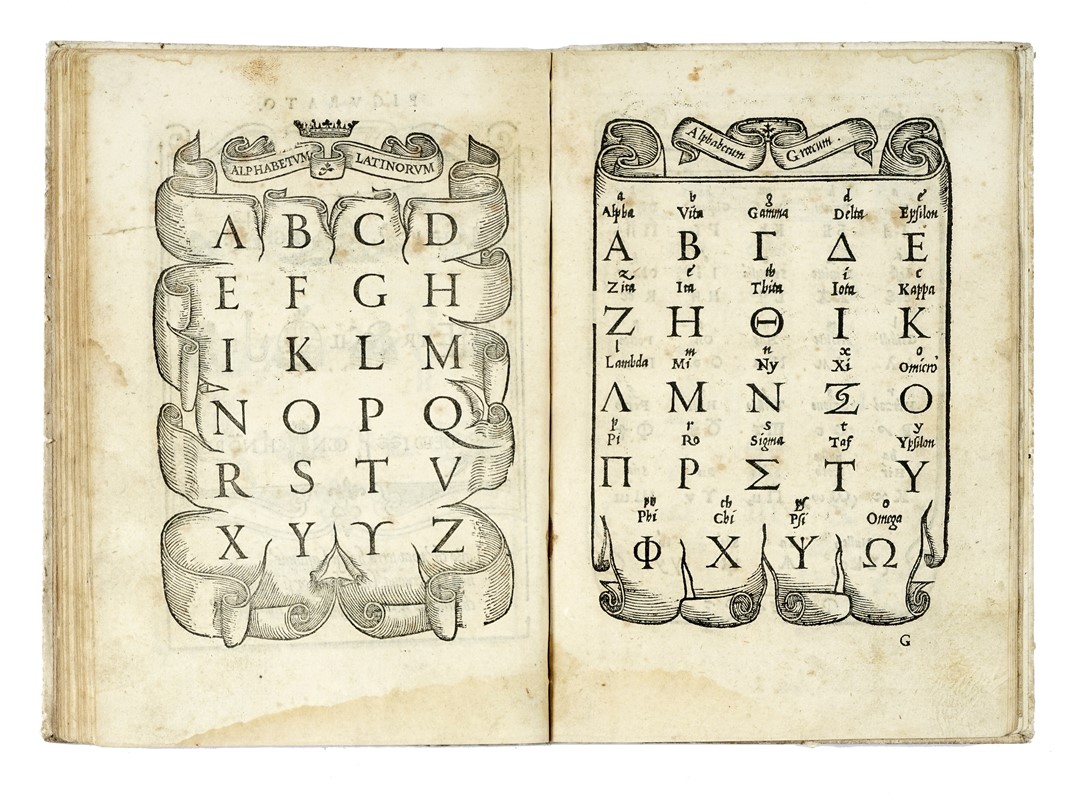 ALPHABETVM LATINORVM
A B C D
E F G H
I K L M
N O P Q
R S T V
X Y ϒ Z
Alphabetum Græcum.
a b g d e
Alpha Vita Gamma Delta Epsilon
Α Β Γ Δ Ε
z e th i c
Zita Ita Thita Iota Kappa
Ζ Η Θ Ι Κ
l m n x o
Lambda Mi Ny Xi Omicrō
Λ Μ Ν Ξ Ο
p r s t y
Pi Ro Sigma Taf Ypsilon
Π Ρ Σ Τ Υ
ph ch ps o
Phi Chi Psi Omega
Φ Χ Ψ Ω
G